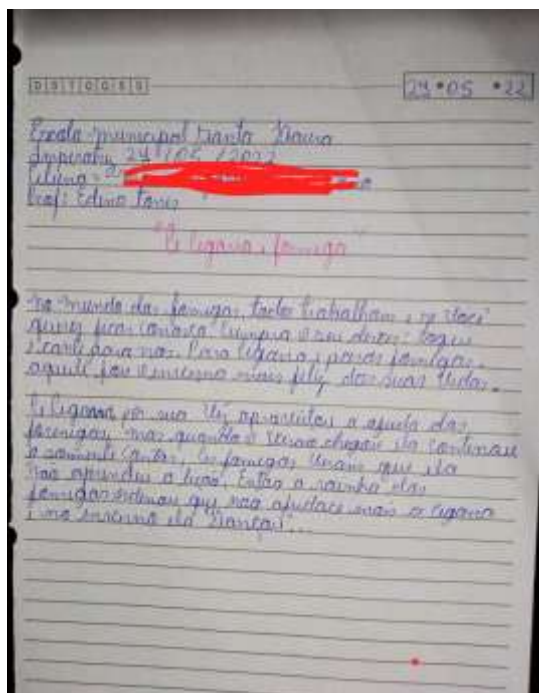 D S T Q Q S S
24 • 05 • 22
Escola municipal Santa Laura
Imperatriz 24 / 05 / 2022
Prof: Edino
"A Cigarra e formiga"
no mundo das formigas, todos trabalham, e se você
quiser ficar conosco cumpra o seu dever: toque
e cante para nós. Para Cigarra e paras formigas,
aquele foi o inverno mais feliz das suas vidas.
A Cigarra por sua vez aproveitou a ajuda das
formigas, mas quando o verão chegou ela continuou
e somente cantar, as formigas viram que ela
não aprendeu a lição. Então a rainha das
formigas ordenou que não ajudace mais a cigarra
e no inverno ela